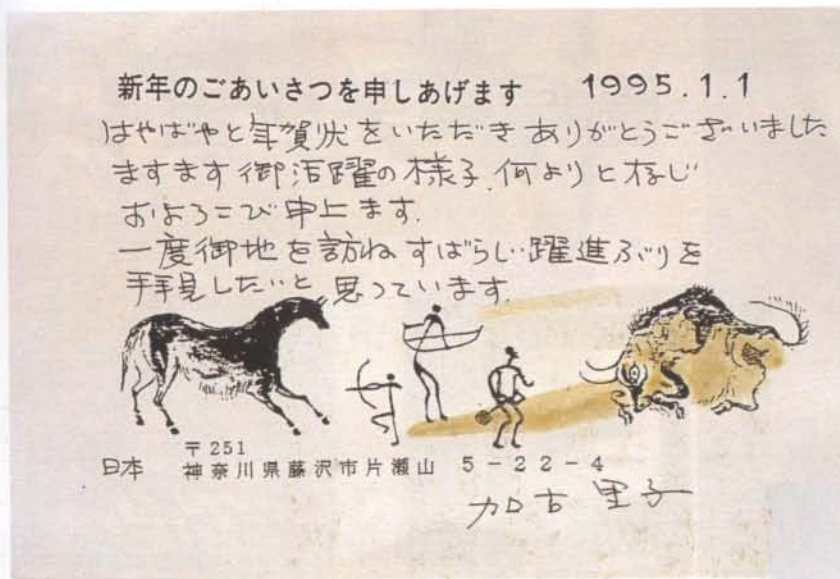 新年のごあいさつを申しあげます 1995.1.1
はやばやと年賀状をいただきありがとうございました
ますます御活躍の様子、何よりと存じ
およろこび申上ます.
一度御地を訪ねすばらしい躍進ぶりを
拝見したいと思っています.
〒251
日本 神奈川県藤沢市片瀬山 5-22-4
加古里子